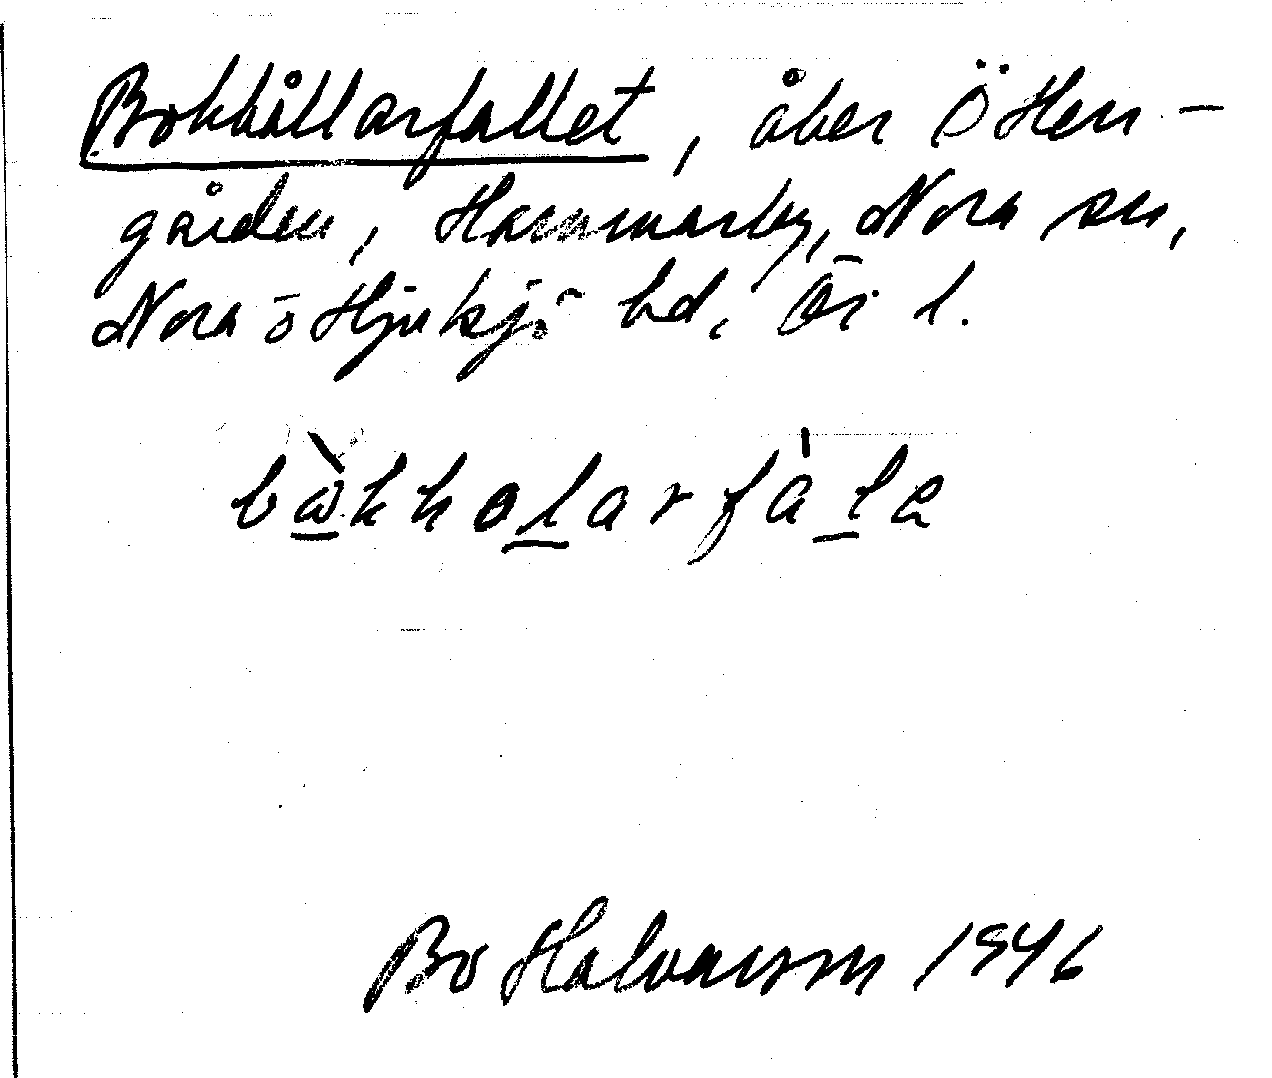 Bokhållarfallet, åker Ö Herr-
gården, Hammarby, Nora sn,
Nora o Hjulsjö bd, Ör l.
bωkholarfala
Bo Halvarson 1946